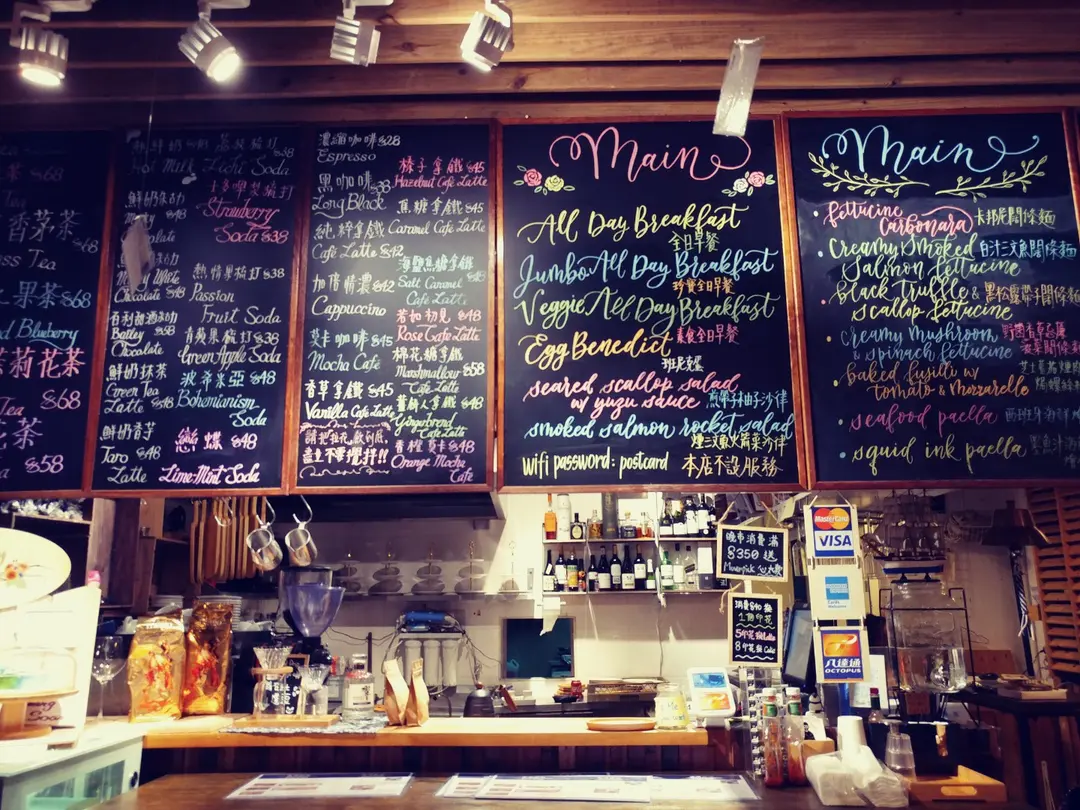 $68
Tea
香茅茶
$68
ss Tea
果茶 $68
Blueberry
茉莉花茶
Tea $68
花茶
ea $58
Milk
鮮奶朱古力
Milky $48
Chocolate
Milky White
Chocolate $48
百利甜酒朱古力
Bailey $58
Chocolate
鮮奶抹茶
Green Tea $48
Latte
鮮奶香芋
Taro $48
Latte
荔枝梳打
Lichi Soda $38
士多啤梨梳打
Strawberry
Soda $38
熱情果梳打 $38
Passion
Fruit Soda
青蘋果梳打 $38
Green Apple Soda
波希米亞 $48
Bohemianism
Soda
戀蝶 $48
Lime Mint Soda
濃縮咖啡 $28
Espresso
黑咖啡 $38
Long Black
純粹拿鐵
Cafe Latte $42
加倍情濃 $42
Cappuccino
莫卡咖啡 $45
Mocha Cafe
香草拿鐵 $45
Vanilla Cafe Latte
請把桂花飲到底
並且不要攪拌!!
榛子拿鐵 $45
Hazelnut Cafe Latte
焦糖拿鐵 $45
Caramel Cafe Latte
海鹽焦糖拿鐵
Salt Caramel $48
Cafe Latte
若如初見 $48
Rose Cafe Latte
棉花糖拿鐵
Marshmallow $58
Cafe Latte
薑餅人拿鐵 $48
Gingerbread
Cafe Latte
香橙莫卡 $48
Orange Mocha
Cafe
Main
All Day Breakfast
全日早餐
Jumbo All Day Breakfast
珍寶全日早餐
Veggie All Day Breakfast
素食全日早餐
Egg Benedict
班尼克蛋
seared scallop salad
w/ yuzu sauce 煎帶子柚子沙律
smoked salmon rocket salad
煙三文魚火箭菜沙律
wifi password: postcard 本店不設服務
Main
Fettucine
Carbonara 卡邦尼闊條麵
Creamy Smoked
Salmon fettucine 白汁三文魚闊條麵
Black Truffle &
Scallop fettucine 黑松露帶子闊條麵
Creamy Mushroom
& spinach fettucine 野菌忌廉
菠菜闊條麵
baked fusilli w/
tomato & Mozzarella
seafood paella 西班牙海鮮
squid ink paella
晚市消費滿
$350 送
Movenpick
消費$40
1個印花
5印花換Latte
8印花換Cake
MasterCard
VISA
八達通
OCTOPUS